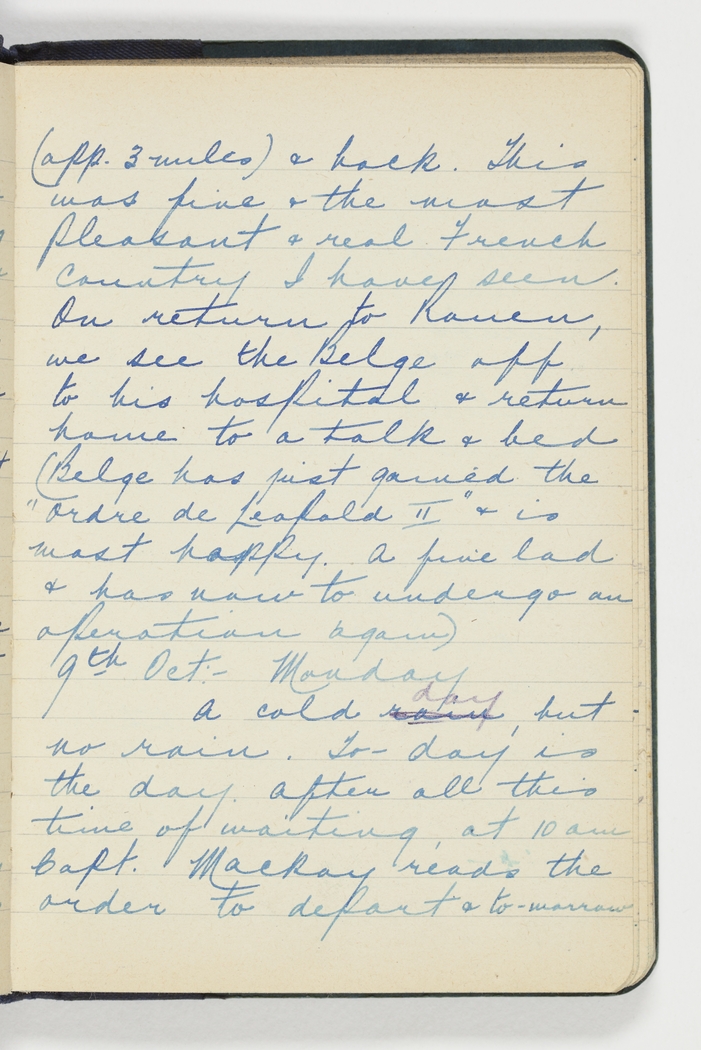 (app. 3 miles) & back. This
was fine & the most
pleasant & real French
country I have seen.
On return to Rouen,
we see the Belge off
to his hospital & return
home to a talk & bed
(Belge has just gained the
"Ordre de Leopold II" & is
most happy. A fine lad
& has now to undergo an
operation again)
9th Oct:- Monday
A cold rain day, but
no rain. To-day is
the day after all this
time of waiting, at 10 am
Capt. Mackay reads the
order to depart & to-morrow